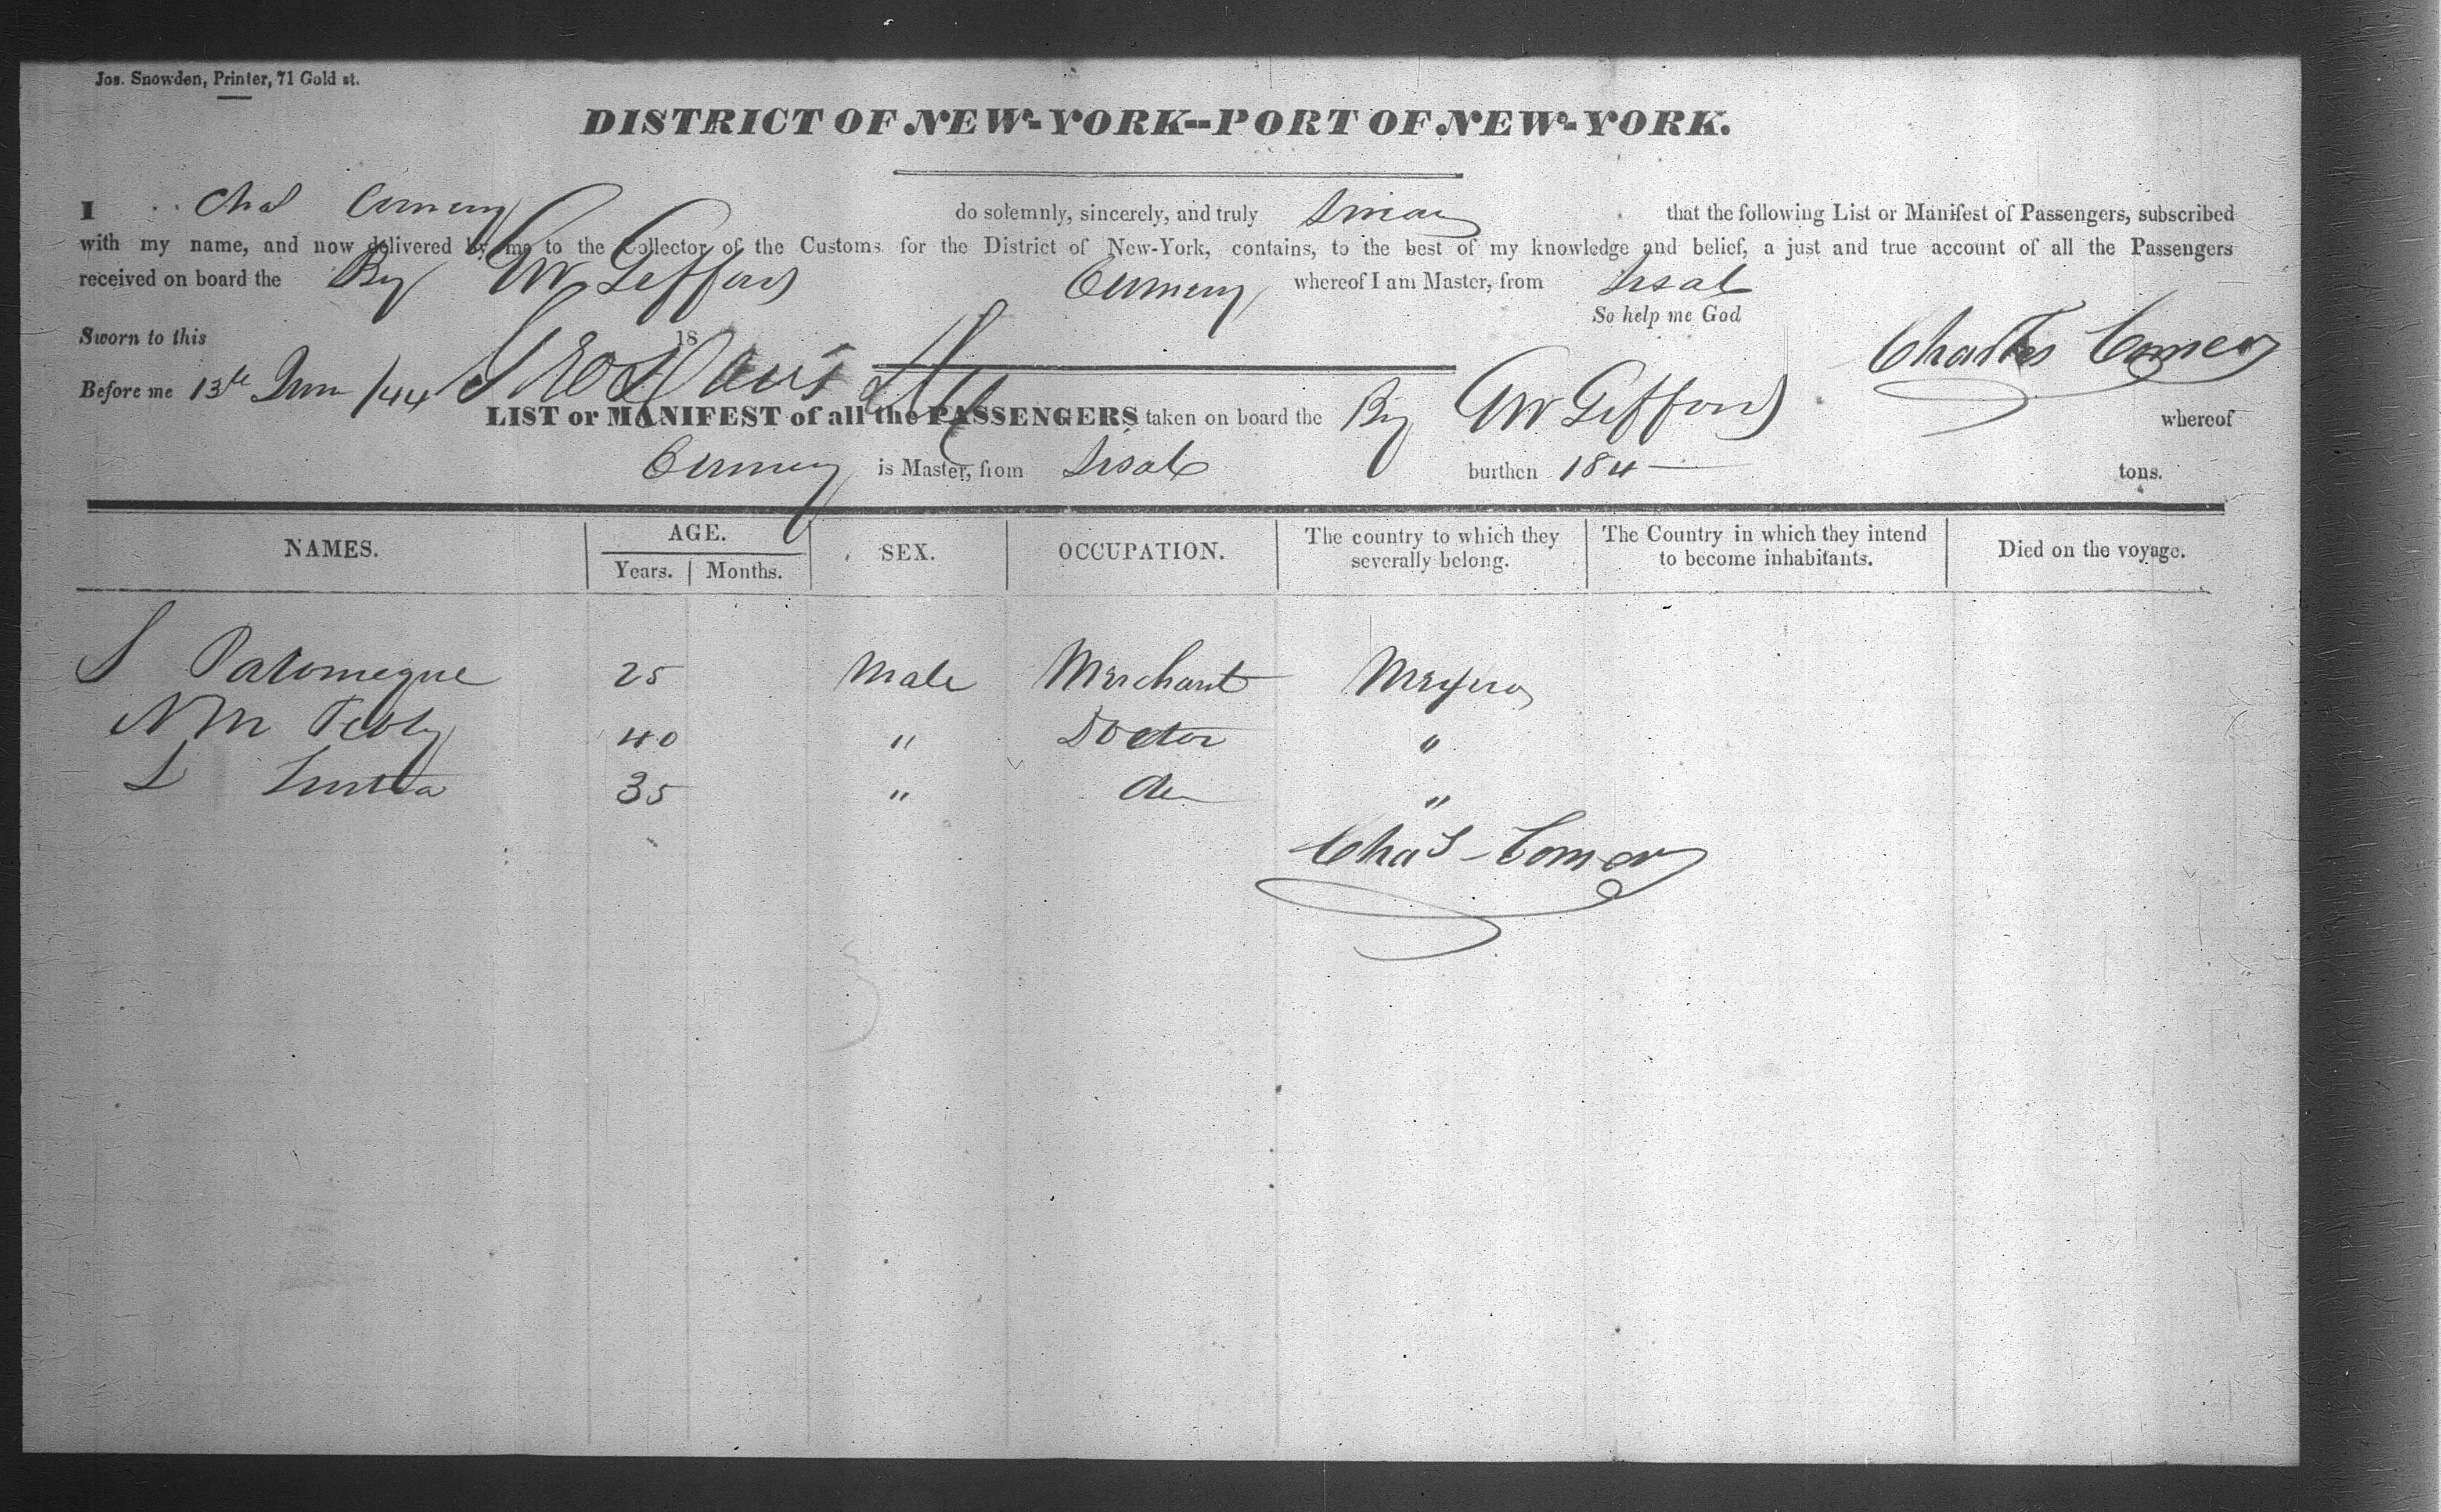 Jos. Snowden, Printer, 71 Gold st.
DISTRICT OF NEW-YORK--PORT OF NEW-YORK.
I Chas Comery do solemnly, sincerely, and truly Swear that the following List or Manifest of Passengers, subscribed
with my name, and now delivered by me to the Collector of the Customs for the District of New-York, contains, to the best of my knowledge and belief, a just and true account of all the Passengers
received on board the Brig GW Gifford Comery whereof I am Master, from Sisal
So help me God
Sworn to this 18 Charles Comery
Before me 13th June /44 Davis
LIST or MANIFEST of all the PASSENGERS taken on board the Brig GW Gifford whereof
Comery is Master, from Sisal burthen 184 tons.
NAMES. AGE. Years. Months. SEX. OCCUPATION. The country to which they severally belong. The Country in which they intend to become inhabitants. Died on the voyage.
S Palomeque 25 Male Merchant Mexico
N M 40 " Doctor "
L 35 " do "
Chas Comery